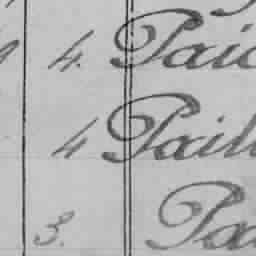 4. Paid
4 Pail
3. Pa